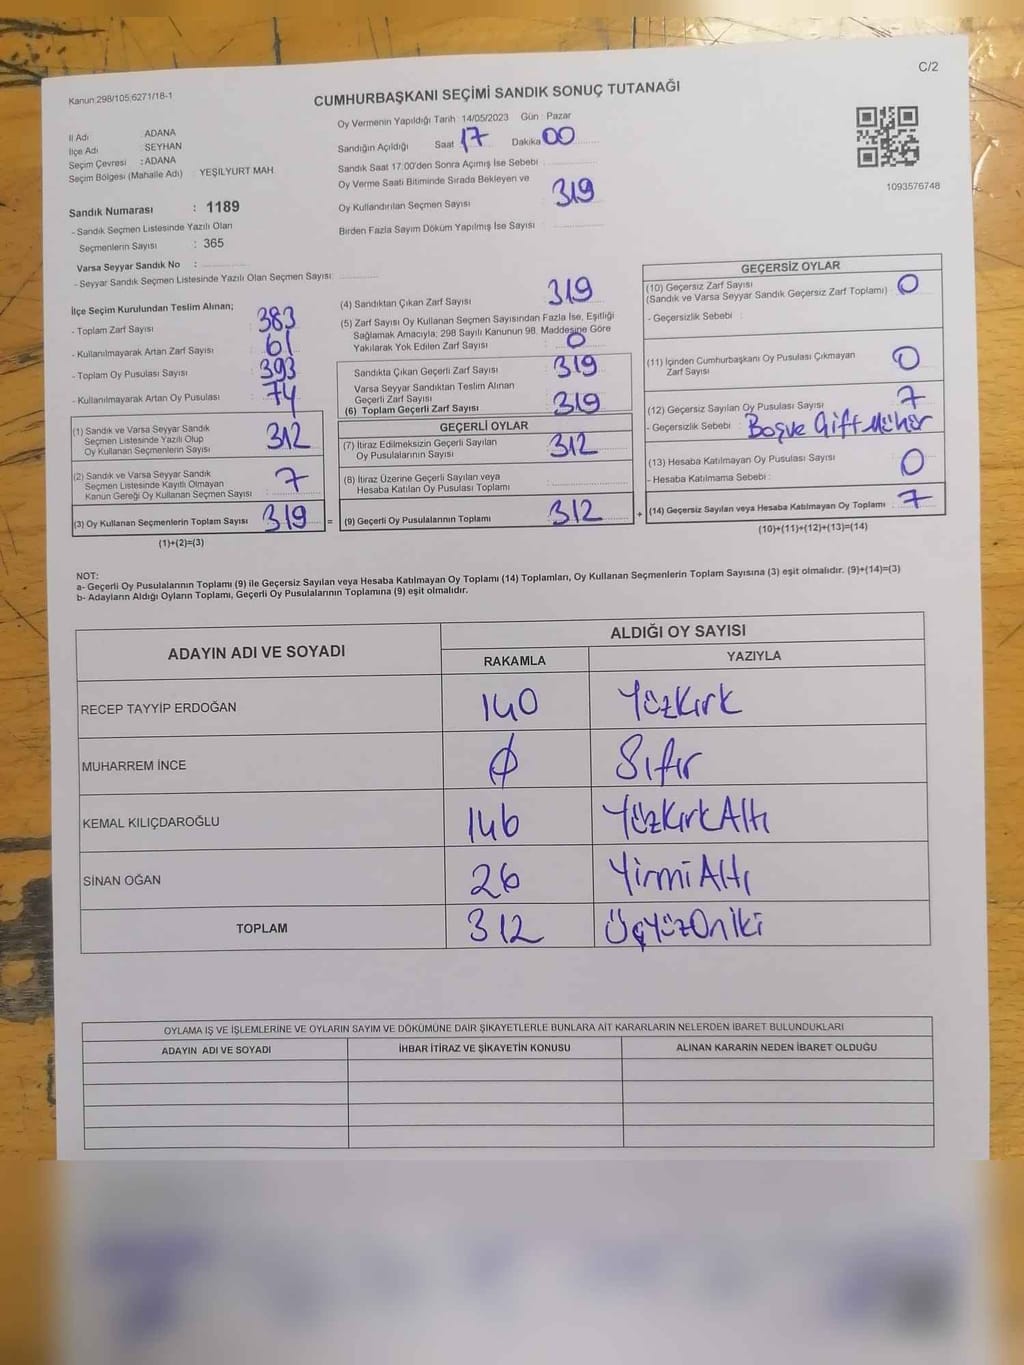 C/2
Kanun:298/105;6271/18-1
CUMHURBAŞKANI SEÇİMİ SANDIK SONUÇ TUTANAĞI
İl Adı ADANA
İlçe Adı SEYHAN
Seçim Çevresi : ADANA
Seçim Bölgesi (Mahalle Adı) YEŞİLYURT MAH
Oy Vermenin Yapıldığı Tarih : 14/05/2023 Gün : Pazar
Sandığın Açıldığı Saat 17 Dakika 00
Sandık Saat 17:00'den Sonra Açımış İse Sebebi
Oy Verme Saati Bitiminde Sırada Bekleyen ve
Oy Kullandırılan Seçmen Sayısı 319
Birden Fazla Sayım Döküm Yapılmış İse Sayısı
1093576748
Sandık Numarası : 1189
- Sandık Seçmen Listesinde Yazılı Olan
Seçmenlerin Sayısı : 365
Varsa Seyyar Sandık No :
- Seyyar Sandık Seçmen Listesinde Yazılı Olan Seçmen Sayısı:
İlçe Seçim Kurulundan Teslim Alınan;
- Toplam Zarf Sayısı 383
- Kullanılmayarak Artan Zarf Sayısı 61
- Toplam Oy Pusulası Sayısı 393
- Kullanılmayarak Artan Oy Pusulası 74
(1) Sandık ve Varsa Seyyar Sandık
Seçmen Listesinde Yazılı Olup
Oy Kullanan Seçmenlerin Sayısı 312
(2) Sandık ve Varsa Seyyar Sandık
Seçmen Listesinde Kayıtlı Olmayan
Kanun Gereği Oy Kullanan Seçmen Sayısı 7
(3) Oy Kullanan Seçmenlerin Toplam Sayısı 319 =
(1)+(2)=(3)
(4) Sandıktan Çıkan Zarf Sayısı 319
(5) Zarf Sayısı Oy Kullanan Seçmen Sayısından Fazla İse, Eşitliği
Sağlamak Amacıyla; 298 Sayılı Kanunun 98. Maddesine Göre
Yakılarak Yok Edilen Zarf Sayısı 0
Sandıkta Çıkan Geçerli Zarf Sayısı 319
Varsa Seyyar Sandıktan Teslim Alınan
Geçerli Zarf Sayısı
(6) Toplam Geçerli Zarf Sayısı 319
GEÇERLİ OYLAR
(7) İtiraz Edilmeksizin Geçerli Sayılan
Oy Pusulalarının Sayısı 312
(8) İtiraz Üzerine Geçerli Sayılan veya
Hesaba Katılan Oy Pusulası Toplamı
(9) Geçerli Oy Pusulalarının Toplamı 312 +
GEÇERSİZ OYLAR
(10) Geçersiz Zarf Sayısı
(Sandık ve Varsa Seyyar Sandık Geçersiz Zarf Toplamı) 0
- Geçersizlik Sebebi :
(11) İçinden Cumhurbaşkanı Oy Pusulası Çıkmayan
Zarf Sayısı 0
(12) Geçersiz Sayılan Oy Pusulası Sayısı 7
- Geçersizlik Sebebi : Boşve Çift Mühür
(13) Hesaba Katılmayan Oy Pusulası Sayısı 0
- Hesaba Katılmama Sebebi :
(14) Geçersiz Sayılan veya Hesaba Katılmayan Oy Toplamı 7
(10)+(11)+(12)+(13)=(14)
NOT:
a- Geçerli Oy Pusulalarının Toplamı (9) ile Geçersiz Sayılan veya Hesaba Katılmayan Oy Toplamı (14) Toplamları, Oy Kullanan Seçmenlerin Toplam Sayısına (3) eşit olmalıdır. (9)+(14)=(3)
b- Adayların Aldığı Oyların Toplamı, Geçerli Oy Pusulalarının Toplamına (9) eşit olmalıdır.
ADAYIN ADI VE SOYADI ALDIĞI OY SAYISI
RAKAMLA YAZIYLA
RECEP TAYYİP ERDOĞAN 140 YüzKırk
MUHARREM İNCE 0 Sıfır
KEMAL KILIÇDAROĞLU 146 YüzKırkAltı
SİNAN OĞAN 26 YirmiAltı
TOPLAM 312 ÜçYüzOniki
OYLAMA İŞ VE İŞLEMLERİNE VE OYLARIN SAYIM VE DÖKÜMÜNE DAİR ŞİKAYETLERLE BUNLARA AİT KARARLARIN NELERDEN İBARET BULUNDUKLARI
ADAYIN ADI VE SOYADI İHBAR İTİRAZ VE ŞİKAYETİN KONUSU ALINAN KARARIN NEDEN İBARET OLDUĞU